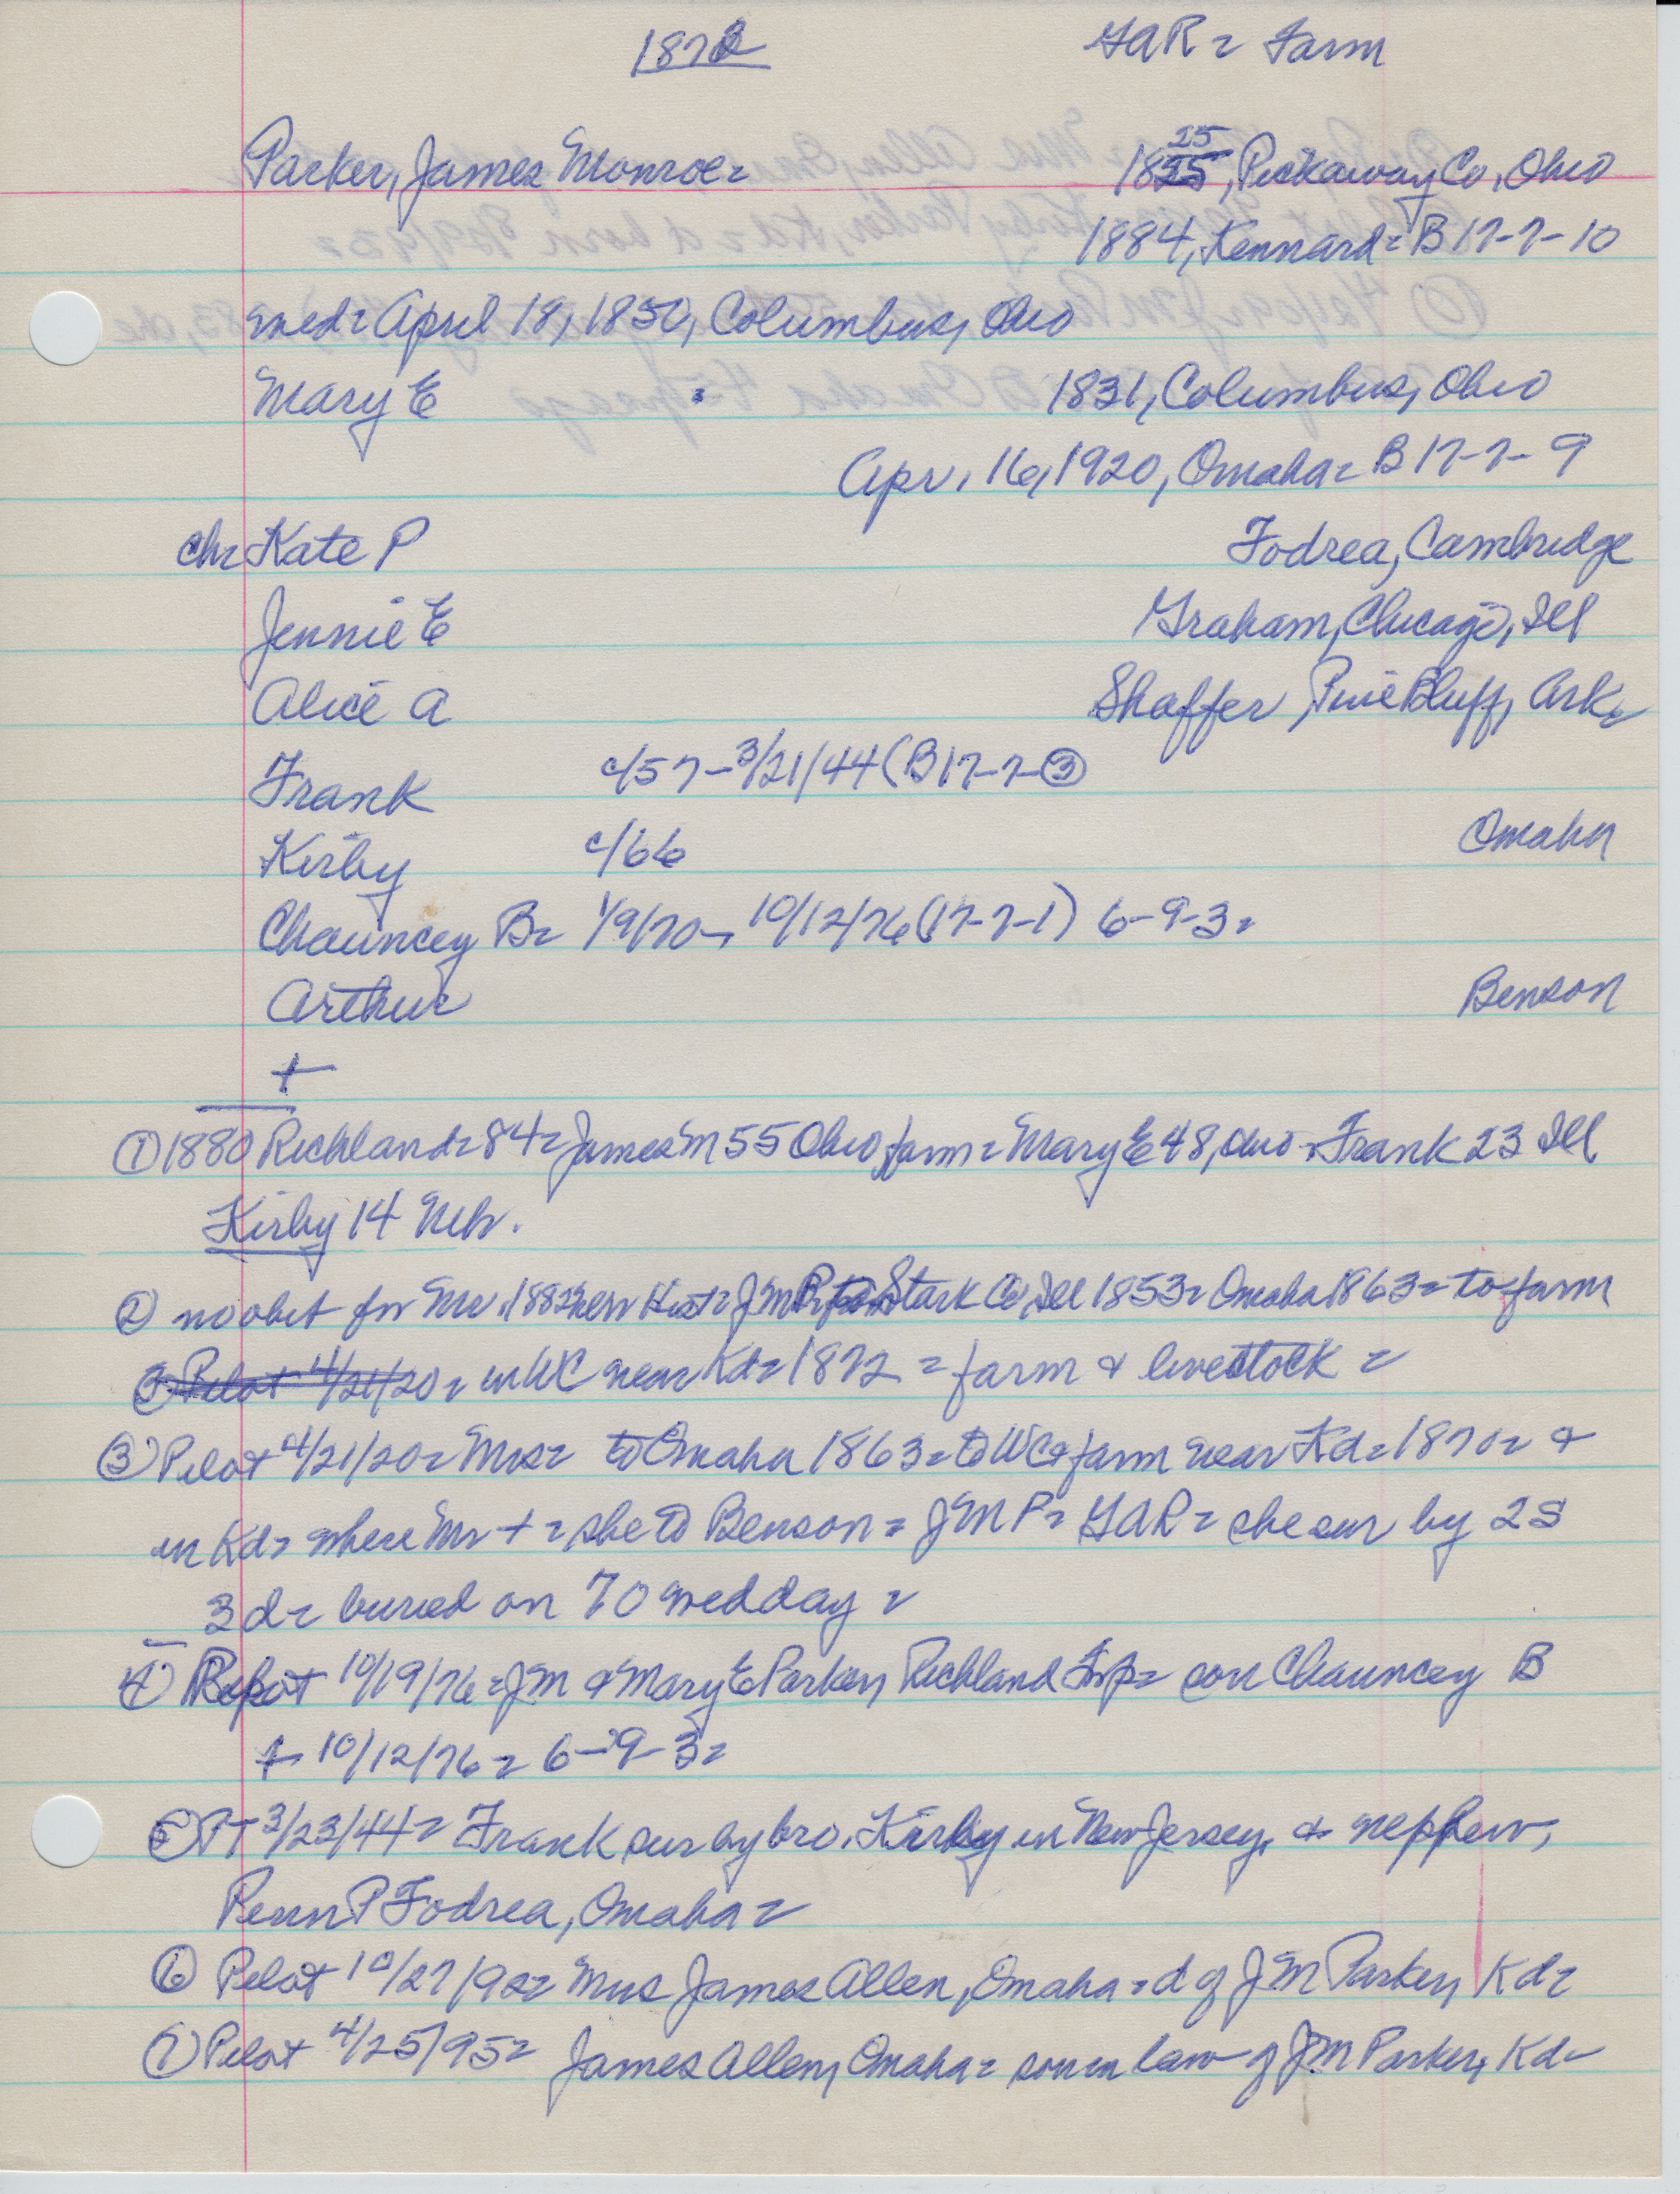 1872 GAR = Farm
Parker, James Monroe = 1825, Pickaway Co, Ohio
25
1884, Kennard = B 17-7-10
med = April 18, 1850, Columbus, Ohio
Mary E = 1831, Columbus, Ohio
Apr. 16, 1920, Omaha = B 17-7-9
ch = Kate P Fodrea, Cambridge
Jennie E Graham, Chicago, Ill
Alice A Shaffer, Pine Bluff, Ark =
Frank c/57 - 3/21/44 (B 17-7-③
Kirby c/66 Omaha
Chauncey B = 1/9/70 - 10/12/76 (17-7-1) 6-9-3 =
Arthur Benson
+
① 1880 Richland = 84 = James M 55 Ohio farm = Mary E 48, Ohio = Frank 23 Ill
Kirby 14 Neb.
② no obit for Mr. 1882 Neb Hist = J M P to Stark Co, Ill 1853 = Omaha 1863 = to farm
③ Pilot 4/21/20 = in WC near Kd = 1872 = farm & livestock =
③ Pilot 4/21/20 = Mrs = to Omaha 1863 = to WC & farm near Kd = 1870 = &
in Kd = where Mr + = she to Benson = J M P = GAR = she sur by 2 S
3 d = buried on 70 med day =
④ Pilot 10/19/76 = J M & Mary E Parker, Richland Twp = son Chauncey B
+ 10/12/76 = 6-9-3 =
⑤ PT 3/23/44 = Frank sur by bro. Kirby in New Jersey, & nephew,
Penn P Fodrea, Omaha =
⑥ Pilot 10/27/92 = Mrs James Allen, Omaha = d of J M Parker, Kd =
⑦ Pilot 4/25/95 = James Allen, Omaha = son in law of J M Parker, Kd =